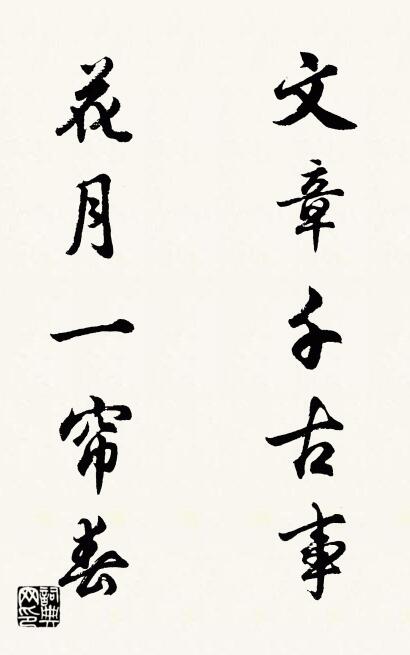 文章千古事
花月一帘春
詞典网印